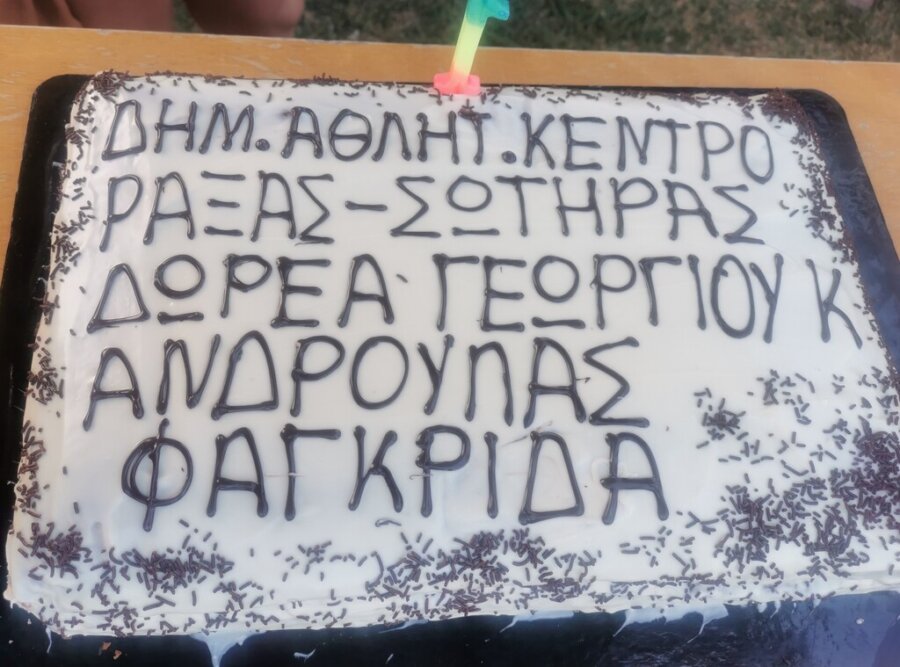 ΔΗΜ. ΑΘΛΗΤ. ΚΕΝΤΡΟ
ΡΑΞΑΣ - ΣΩΤΗΡΑΣ
ΔΩΡΕΑ ΓΕΩΡΓΙΟΥ Κ
ΑΝΔΡΟΥΛΑΣ
ΦΑΓΚΡΙΔΑ